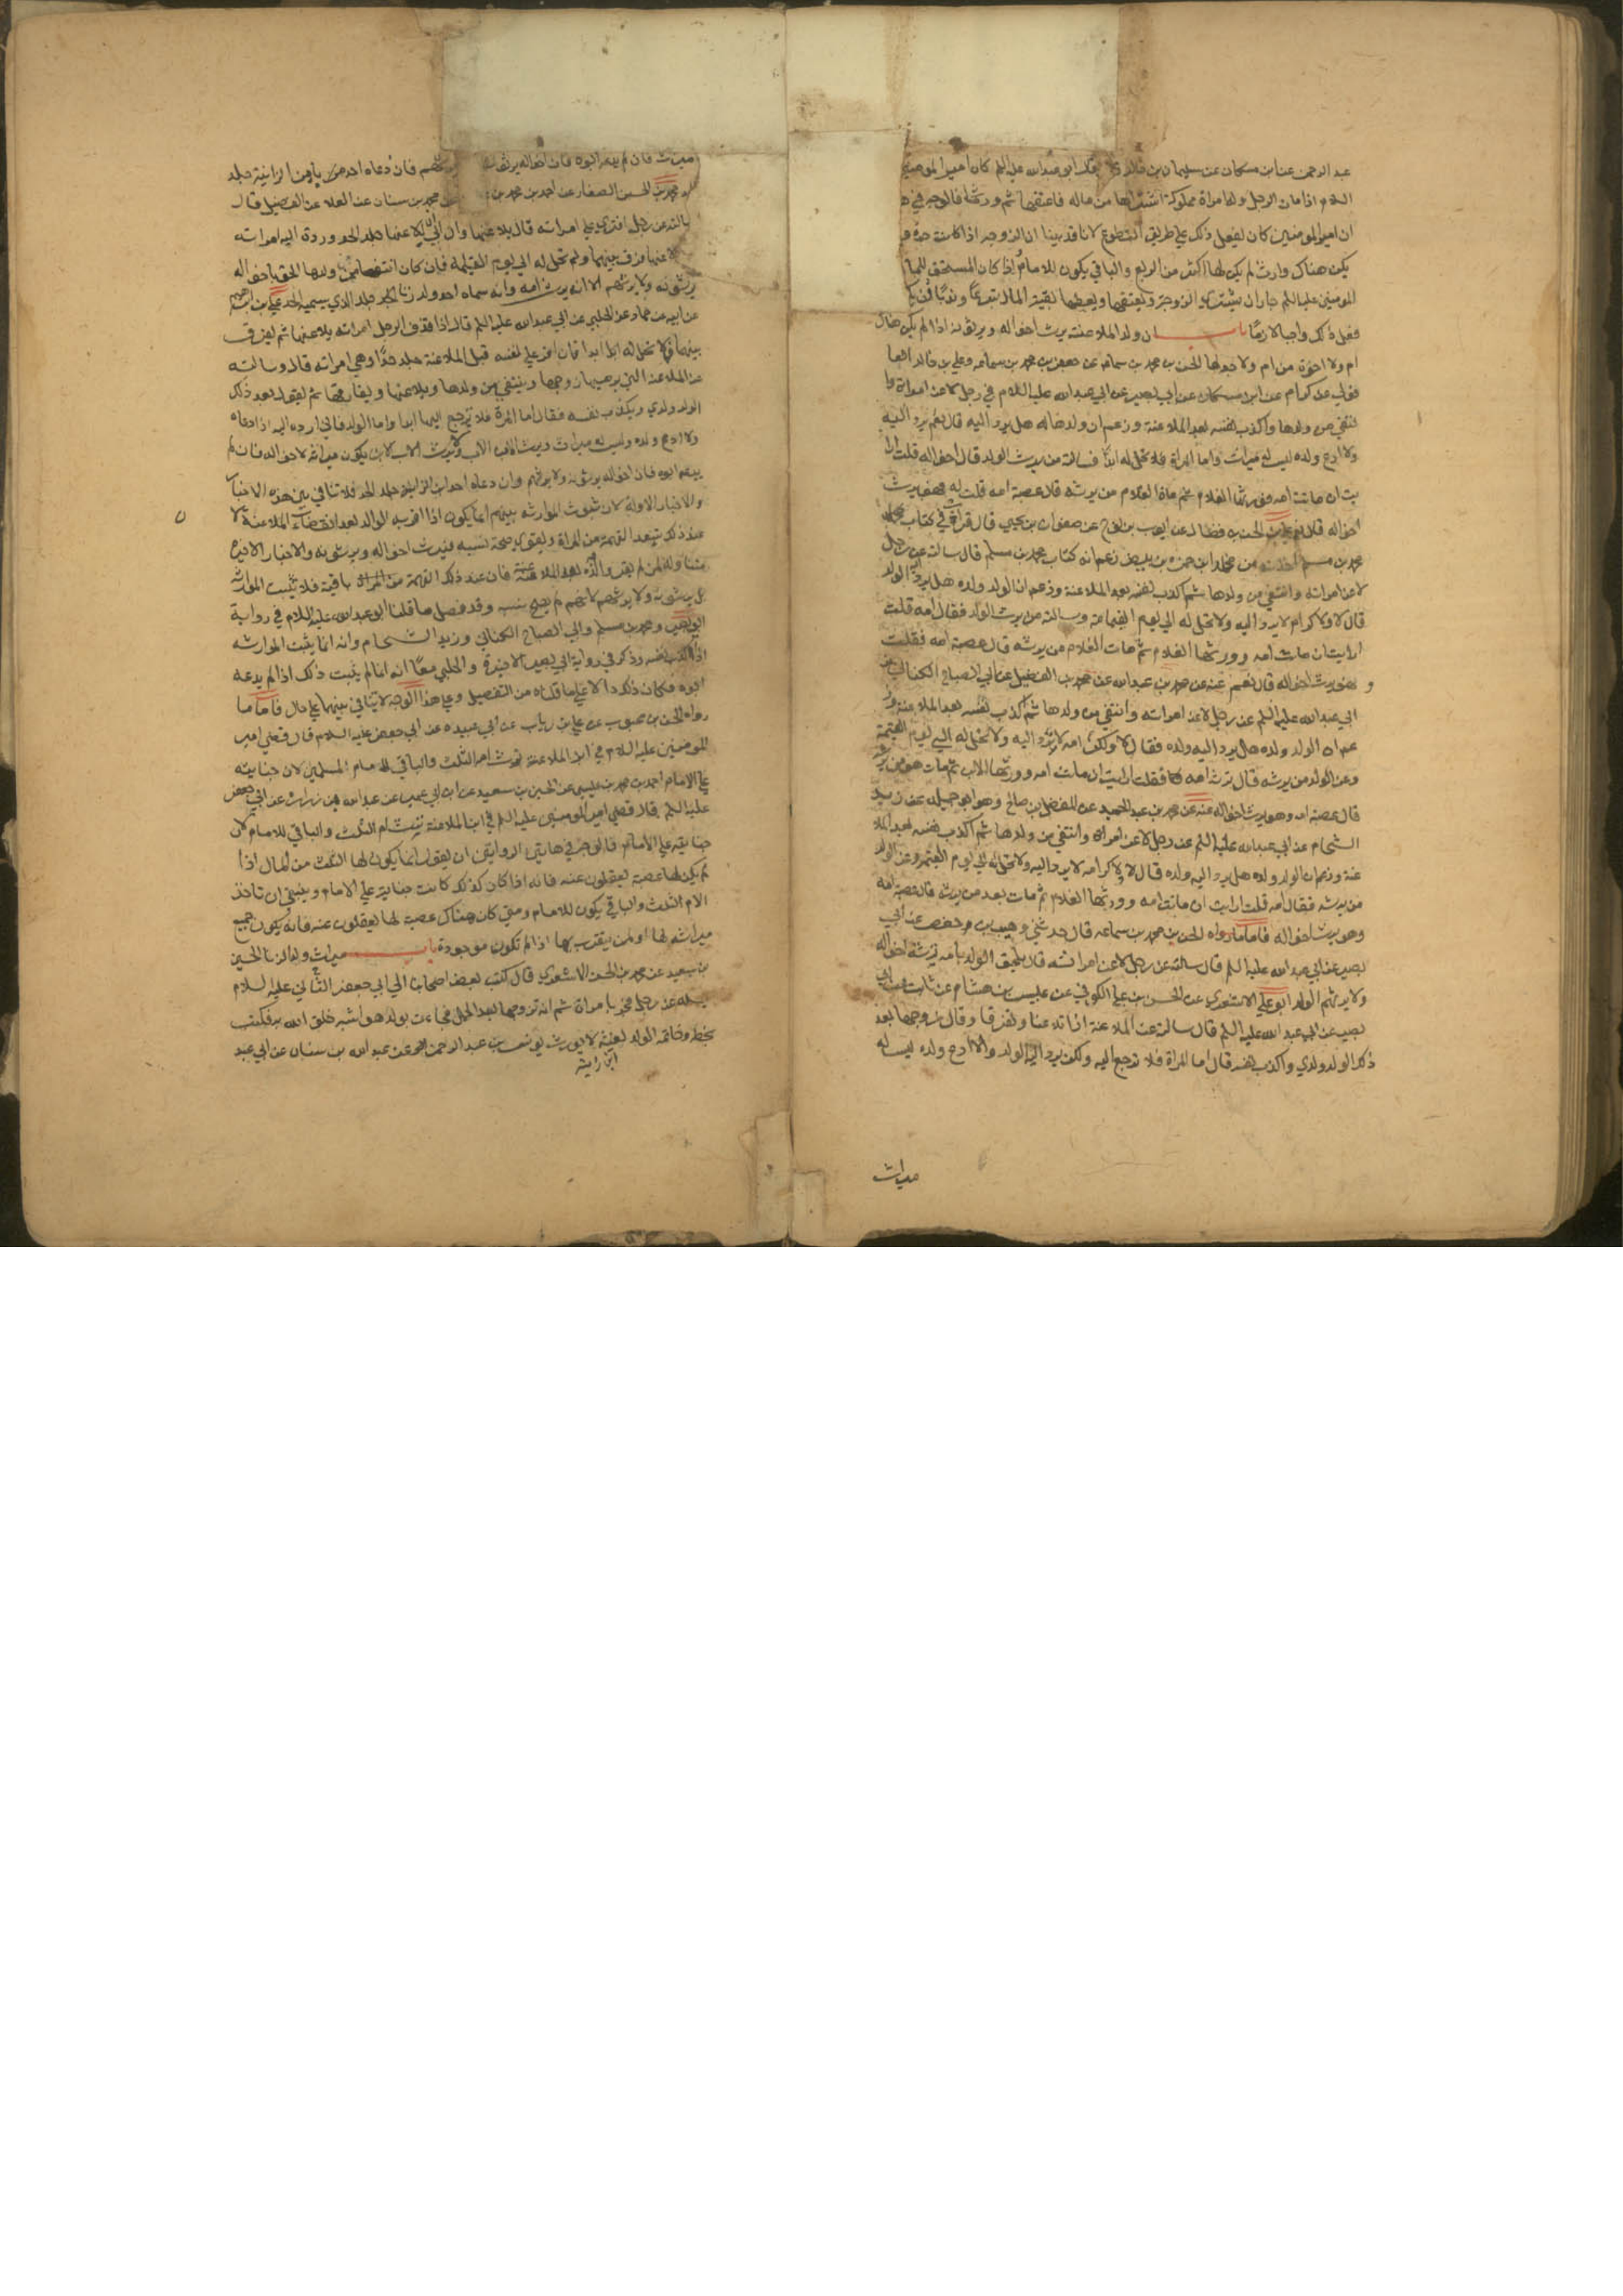 عبد الرحمن عن ابن مسكان عن سليمان بن خالد قال قال ابو عبد الله عليه السلم كان امير المومنين
السلام اذا مات الرجل وله امراة مملوكة اشتراها من ماله فاعتقها ثم ورثها فالوجه في
ان امير المومنين كان يفعل ذلك على طريق التطوع لانا قد بينا ان الزوجة اذا كانت حرة و
يكن هناك وارث لم يكن لها اكثر من الربع والباقي يكون للامام اذا كان المستحق للمال
المومنين عليه السلم جاز ان يشتري الزوجة ويعتقها ويعطيها بقية المال تبرعا وندبا
فعل ذلك واجبا لازما باب ان ولد الملاعنة يرث اخواله ويرثونه اذا لم يكن هناك
ام ولا اخوة من ام ولا جد لها الحسن بن محمد بن سماعه عن جعفر بن محمد بن سماعه وعلي بن خالد العا
قولي عن كرام عن ابن مسكان عن ابي بصير عن ابي عبد الله عليه السلام في رجل لاعن امراته وا
نتفى من ولدها واكذب نفسه بعد الملاعنة وزعم ان ولدها له هل يرد اليه قال نعم يرد اليه
ولا ادع ولده ليس له ميراث واما المراة فلا تحل له ابدا فسالته من يرث الولد قال اخواله قلت ارا
يت ان ماتت امه فورثها الغلام ثم مات الغلام من يرثه قال عصبة امه قلت له فهو يرث
اخواله قال نعم علي بن الحسن بن فضال عن ايوب بن نوح عن صفوان بن يحيى قال قرات في كتاب محمد
محمد بن مسلم اخذته من مخلد ابن حمزه بن بيض زعم انه كتاب محمد بن مسلم قال سالته عن رجل
لاعن امراته وانتفى من ولدها ثم اكذب نفسه بعد الملاعنة وزعم ان الولد ولده هل يرد اليه الولد
قال لا ولا كرامة لا يرد اليه ولا تحل له الى يوم القيامة وسالته من يرث الولد فقال امه قلت
ارايت ان ماتت امه وورثها الغلام ثم مات الغلام من يرثه قال عصبة امه فقلت
و هو يرث اخواله قال نعم عنه عن محمد بن عبد الله عن محمد بن الفضيل عن ابي الصباح الكناني عن
ابي عبد الله عليه السلم عن رجل لاعن امراته وانتفى من ولدها ثم اكذب نفسه بعد الملاعنة وز
عم ان الولد ولده هل يرد اليه ولده فقال لا ولا كرامة لا يرد اليه ولا تحل له الى يوم القيمة
وعن الولد من يرثه قال ترثه امه فقلت ارايت ان ماتت امه وورثها الابن ثم مات هو من يرثه
قال عصبة امه وهو يرث اخواله عنه عن محمد بن عبد الحميد عن المفضل بن صالح وهو ابو جميله عن زيد
الشحام عن ابي عبد الله عليه السلم عن رجل لاعن امراته وانتفى من ولدها ثم اكذب نفسه بعد الملا
عنة وزعم ان الولد ولده هل يرد اليه ولده قال لا ولا كرامة لا يرد اليه ولا تحل له الى يوم القيمة وعن الولد
من يرثه فقال امه قلت ارايت ان ماتت امه وورثها الغلام ثم مات بعد من يرثه قال عصبة امه
وهو يرث اخواله فاما ما رواه الحسن بن محمد بن سماعه قال حدثني وهيب بن حفص عن ابي
بصير عن ابي عبد الله عليه السلم قال سالته عن رجل لاعن امراته قال يلحق الولد بامه ترثه اخواله
ولا يرثهم الولد ابو علي الاشعري عن الحسن بن علي الكوفي عن عبيس بن هشام عن ثابت عن ابي
بصير عن ابي عبد الله عليه السلم قال سالته عن الملاعنة اذا تلاعنا وتفرقا وقال زوجها بعد
ذلك الولد ولدي واكذب نفسه قال اما المراة فلا ترجع اليه ولكن يرد اليه الولد ولا ادع ولده ليس له
ميراث
ميراث فان لم يدعه ابوه فان اخواله يرثونه ولا يرثهم فان دعاه احد من يا ابن الزانية جلد
محمد بن الحسن الصفار عن احمد بن محمد بن عن محمد بن سنان عن العلا عن الفضيل قال
سالته عن رجل افترى على امراته قال يلاعنها وان ابى ان يلاعنها جلد الحد وردت اليه امراته
لاعنها فرق بينهما ولم تحل له الى يوم القيمة فان كان انتفى من ولدها الحق باخواله
يرثونه ولا يرثهم الا انه يرث امه وانه سماه احد ولد زنا جلد الذي يسميه الحد علي بن ابرهيم
عن ابيه عن حماد عن الحلبي عن ابي عبد الله عليه السلم قال اذا قذف الرجل امراته يلاعنها ثم يفرق
بينهما فلا تحل له ابدا فان اقر على نفسه قبل الملاعنة جلد حدا وهي امراته قال وسالته
عن الملاعنة التي يرميها زوجها وينتفي من ولدها ويلاعنها ويفارقها ثم يقول بعد ذلك
الولد ولدي ويكذب نفسه فقال اما المراة فلا ترجع اليه ابدا واما الولد فاني ارده اليه اذا ادعاه
ولا ادع ولده وليس له ميراث ويرث الابن الاب ولا يرث الاب الابن يكون ميراثه لاخواله فان لم
يدعه ابوه فان اخواله يرثونه ولا يرثهم وان دعاه احد ابن الزانية جلد الحد فلا تنافي بين هذه الاخبار
والاخبار الاولة لان ثبوت الموارثه بينهم انما يكون اذا اقر به الوالد بعد انقضاء الملاعنة لا
عند ذلك تبعد التهمة من المراة ويقوى صحة نسبه فيرث اخواله ويرثونه والاخبار الاخيرة
متناولة لمن لم يقر والده بعد الملاعنة فان عند ذلك التهمة من المراة باقية فلا تثبت الموارثه
بل يرثونه ولا يرثهم لانهم لم يصح نسبه وقد فصل ما قلنا ابو عبد الله عليه السلام في رواية
ابي بصير ومحمد بن مسلم وابي الصباح الكناني وزيد الشحام وانه انما يثبت الموارثه
اذا اكذب نفسه وذكر في رواية ابي بصير الاخيرة والحلبي معا انه انما لم يثبت ذلك اذا لم يدعه
ابوه فكان ذلك دالا على ما قلناه من التفصيل وعلى هذا الوجه لا تنافي بينهما على حال فاما ما
رواه الحسن بن محبوب عن علي بن رياب عن ابي عبيده عن ابي جعفر عليه السلام قال قضى امير
المومنين عليه السلام في ابن الملاعنة ترث امه الثلث والباقي لامام المسلمين لان جنايته
على الامام احمد بن محمد بن عيسى عن الحسين بن سعيد عن ابن ابي عمير عن عبد الله بن زرارة عن ابي جعفر
عليه السلم قال قضى امير المومنين عليه السلم في ابن الملاعنة ترث امه الثلث والباقي للامام لان
جنايته على الامام فالوجه في هاتين الروايتين ان يقول انما يكون لها الثلث من المال اذا
لم يكن لها عصبة يعقلون عنه فانه اذا كان كذلك كانت جنايته على الامام وينبغي ان تاخذ
الام الثلث والباقي يكون للامام ومتى كان هناك عصبة لها يعقلون عنه فانه يكون جميع
ميراثه لها او لمن يتقرب بها اذا لم تكون موجودة باب ميراث ولد الزنا الحسين
بن سعيد عن محمد بن الحسن الاشعري قال كتب بعض اصحابنا الى ابي جعفر الثاني عليه السلام
يسله عن رجل فجر بامراة ثم انه تزوجها بعد الحمل فجاءت بولد هو اشبه خلق الله به فكتب
بخطه وخاتمه الولد لغية لا يورث يونس بن عبد الرحمن عن عبد الله بن سنان عن ابي عبد